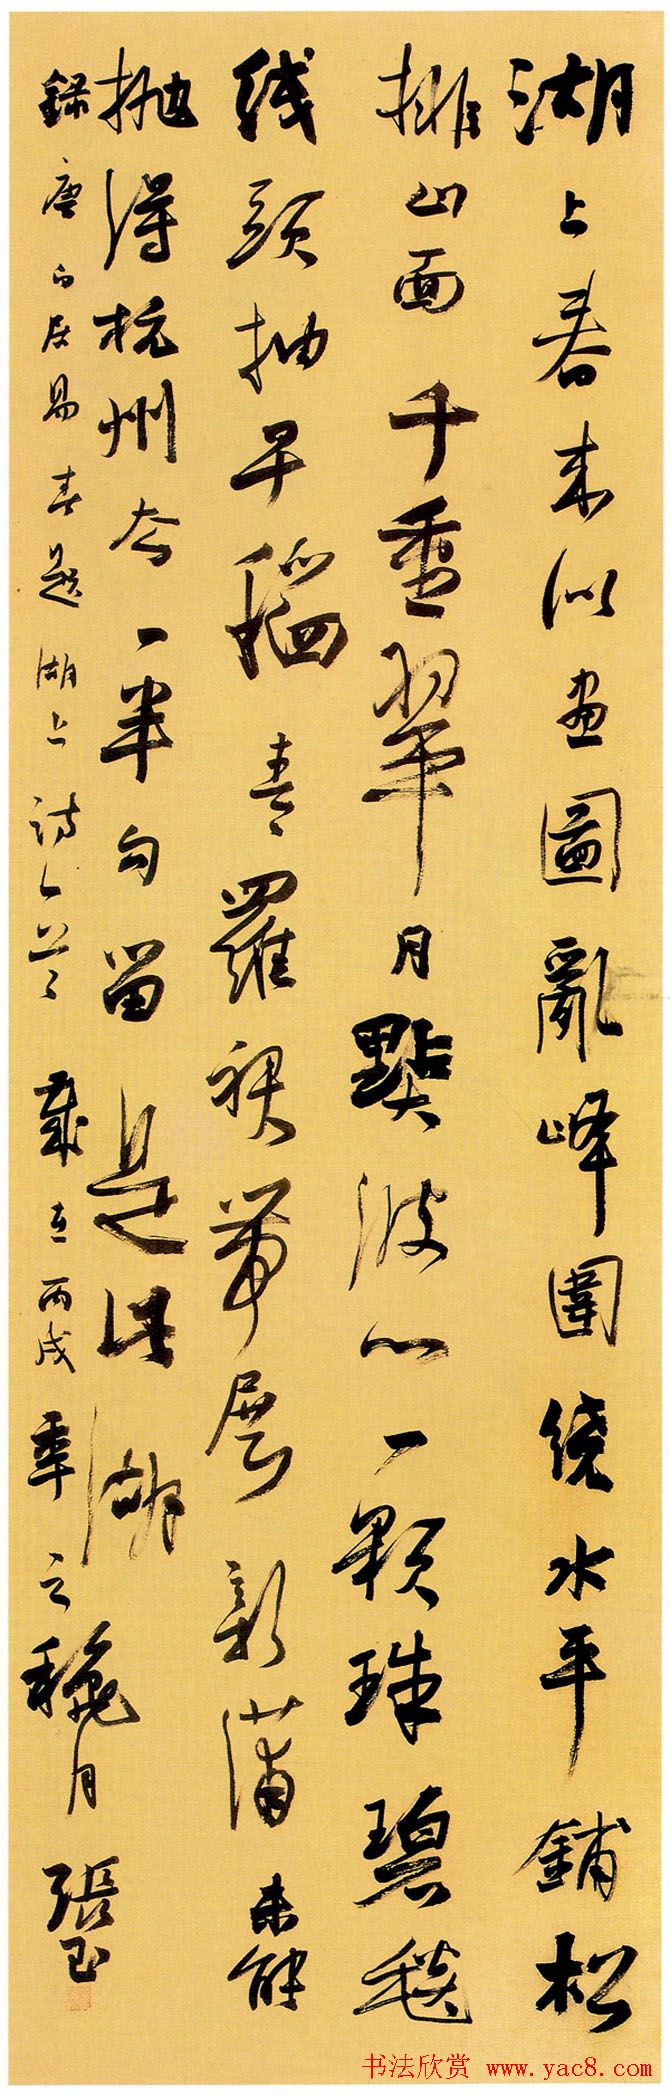 湖上春来似画圖亂峰圍绕水平鋪松
排山面千重翠月點波心一顆珠碧毯
线頭抽早稻青羅裙帶展新蒲未能
抛得杭州去一半勾留是此湖
錄唐白居易春題湖上詩首歲在丙戌年之穐月張玉
书法欣赏 www.yac8.com